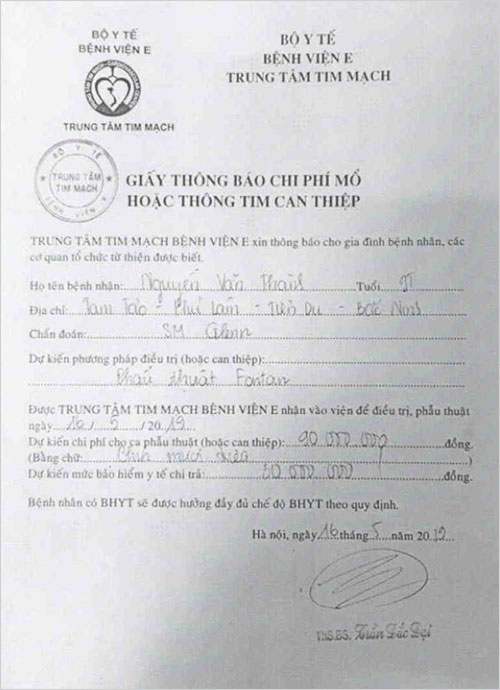 BỘ Y TẾ
BỆNH VIỆN E
TRUNG TÂM TIM MẠCH
BỘ Y TẾ
BỆNH VIỆN E
TRUNG TÂM TIM MẠCH
BỘ Y TẾ
TRUNG TÂM
TIM MẠCH
BỆNH VIỆN E
GIẤY THÔNG BÁO CHI PHÍ MỔ
HOẶC THÔNG TIM CAN THIỆP
TRUNG TÂM TIM MẠCH BỆNH VIỆN E xin thông báo cho gia đình bệnh nhân, các
cơ quan tổ chức từ thiện được biết.
Họ tên bệnh nhân: Nguyễn Văn Tuổi
Địa chỉ: Tam Tảo - Phú Lâm - Tiên Du - Bắc Ninh
Chẩn đoán: SM Glenn
Dự kiến phương pháp điều trị (hoặc can thiệp):
Phẫu thuật Fontan
Được TRUNG TÂM TIM MẠCH BỆNH VIỆN E nhận vào viện để điều trị, phẫu thuật
ngày 16 / 5 / 2019
Dự kiến chi phí cho ca phẫu thuật (hoặc can thiệp): 90 000 000 đồng.
(Bằng chữ: Chín mươi triệu)
Dự kiến mức bảo hiểm y tế chi trả: 50 000 000 đồng.
Bệnh nhân có BHYT sẽ được hưởng đầy đủ chế độ BHYT theo quy định.
Hà nội, ngày 16 tháng 5 năm 2019
ThS.BS. Trần Đắc Đại